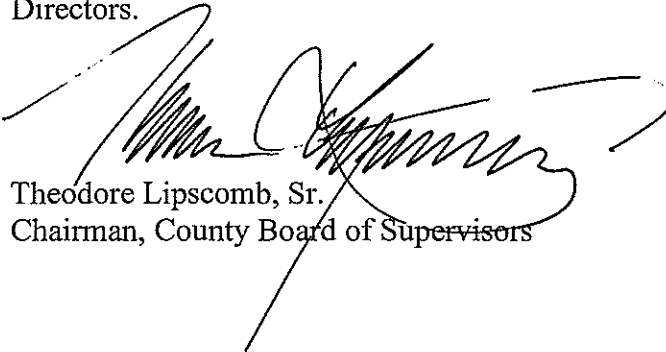 Directors.
Theodore Lipscomb, Sr.
Chairman, County Board of Supervisors